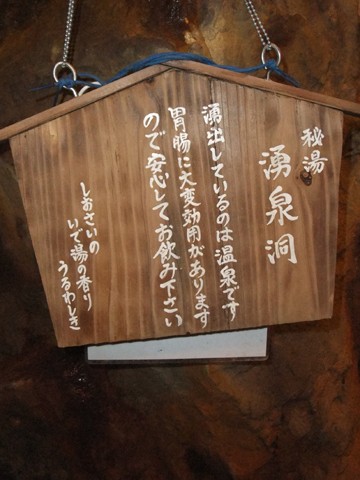 秘湯
湧泉洞
湧出しているのは温泉です
胃腸に大変効用があります
ので安心してお飲み下さい
しおさいの
いで湯の香り
うるわしき